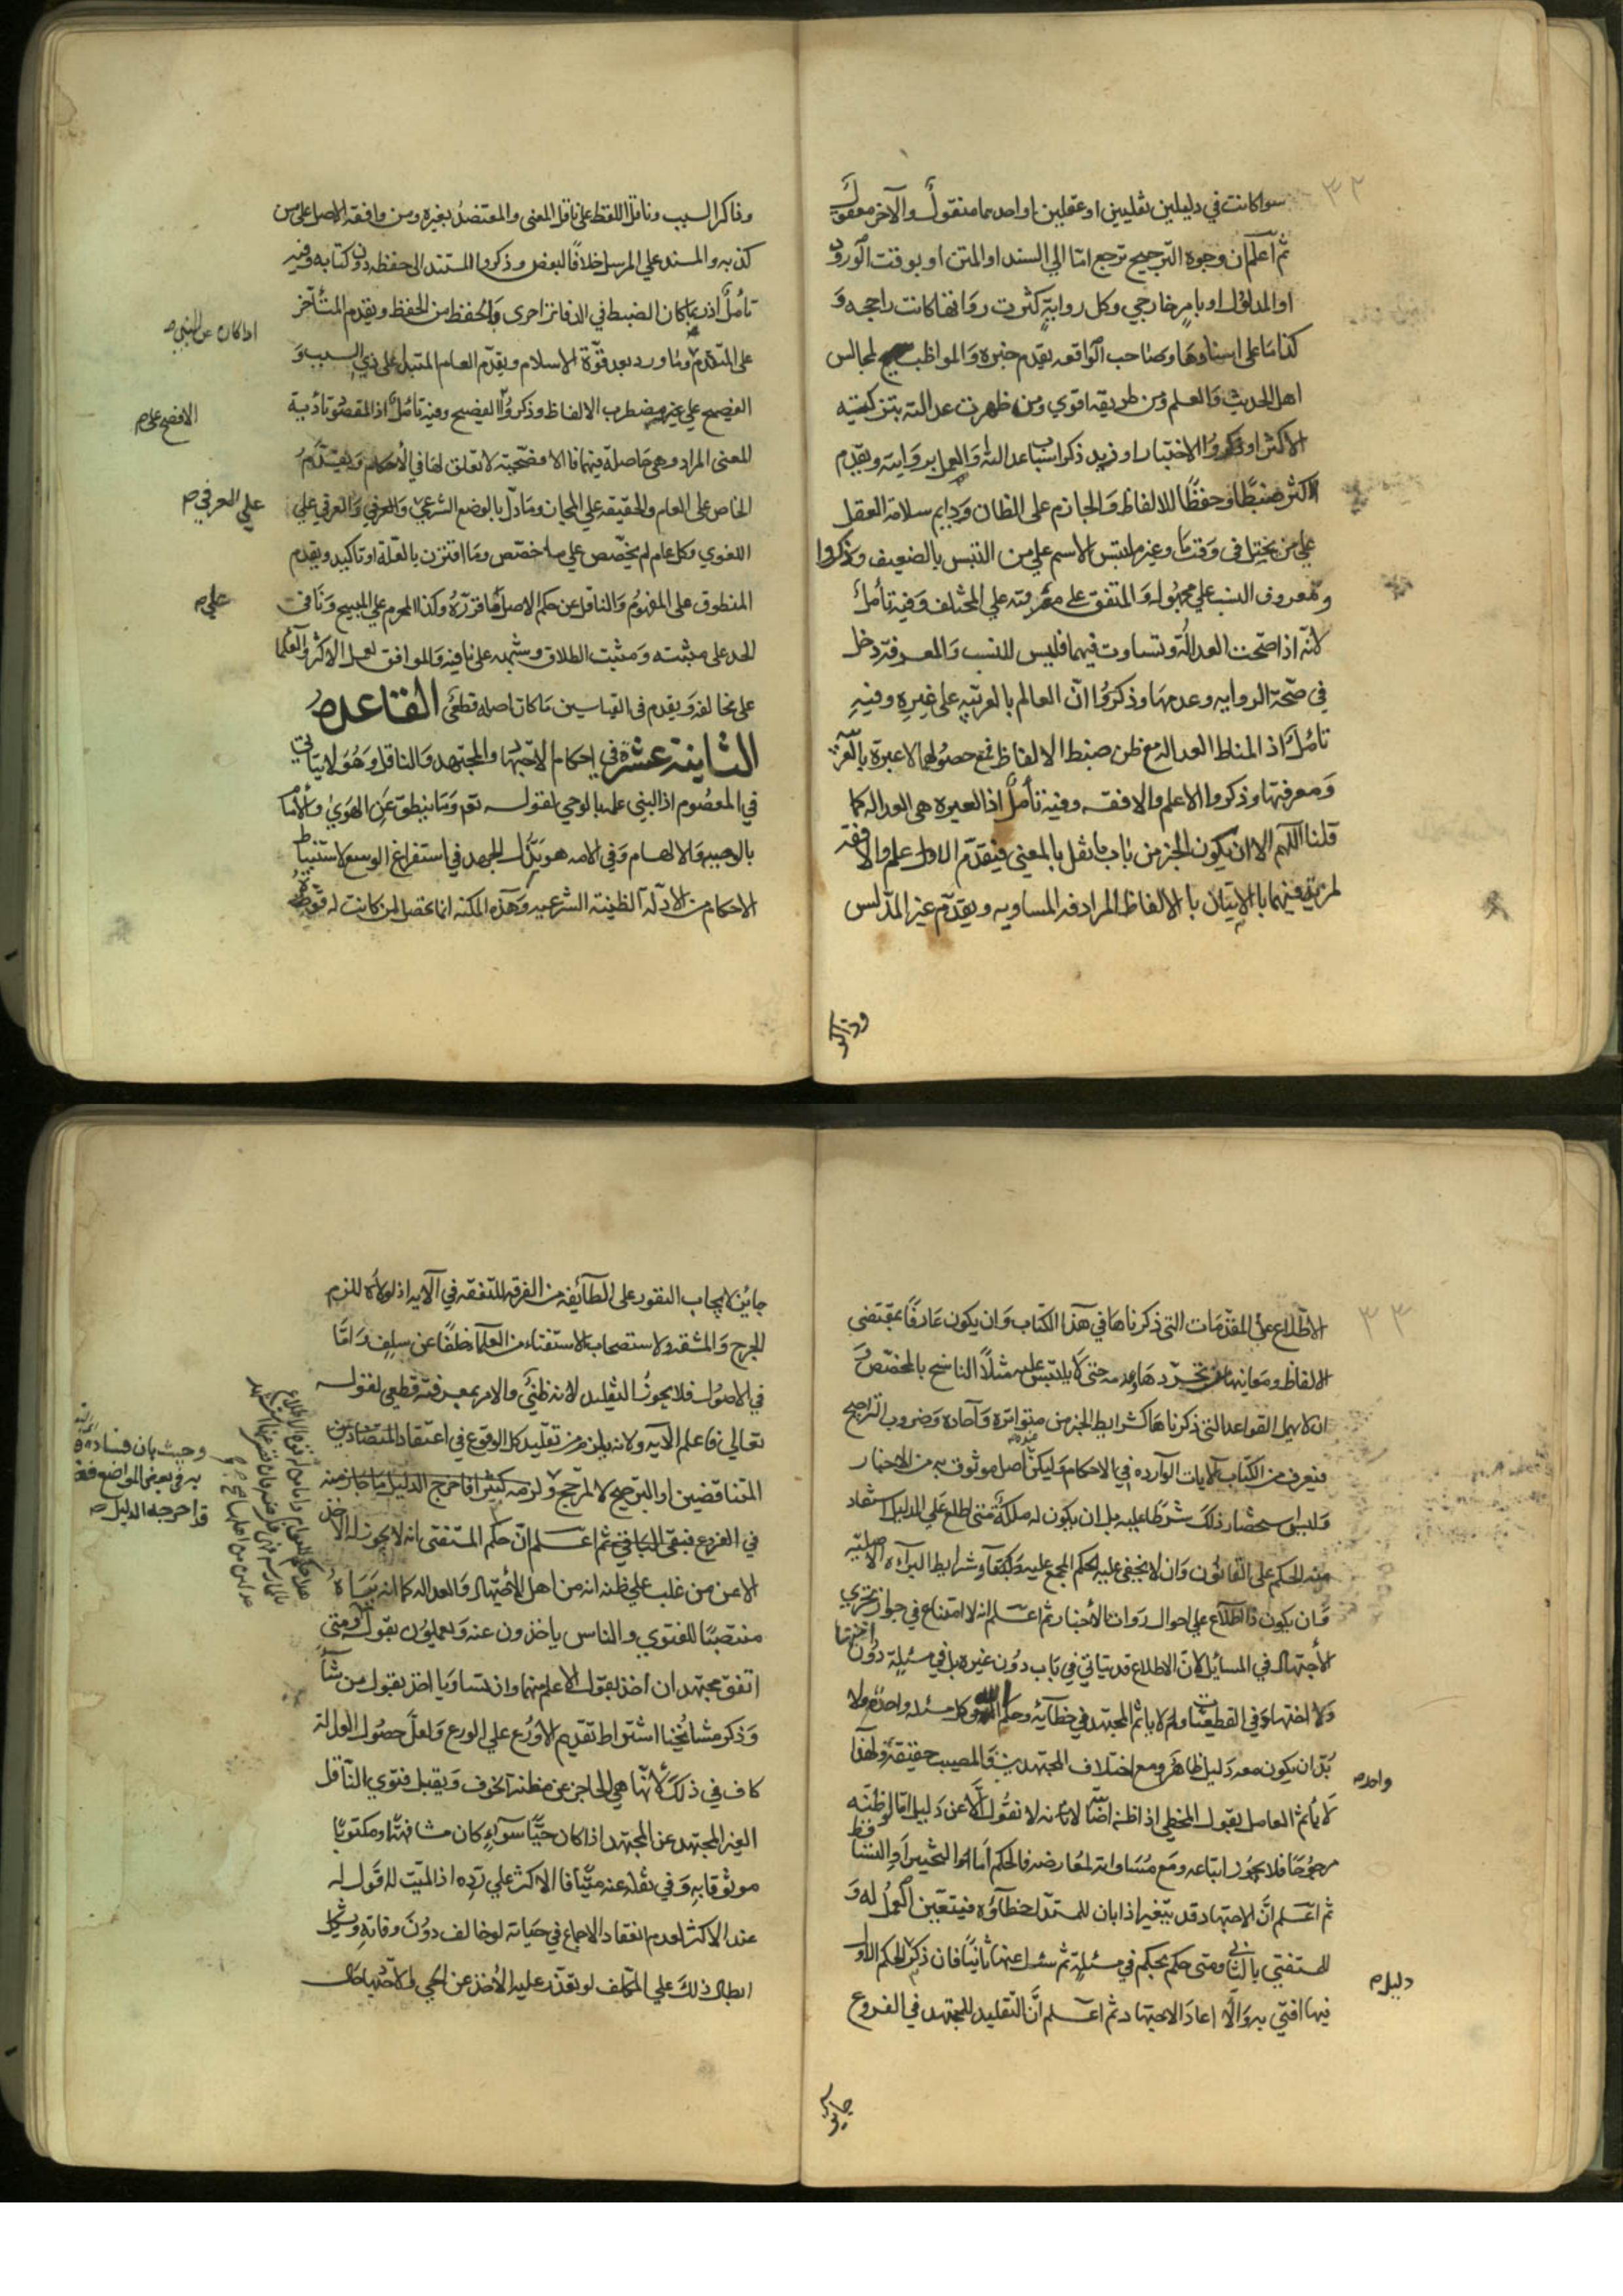 ٣٢
سوا كانت في دليلين نقليين او عقليين او احدهما منقول والآخر معقول
ثم اعلم ان وجوه الترجيح ترجع امّا الي السند او المتن او بوقت الورود
او المدلول او بامر خارجي وكل رواية كثرت رواتها كانت راجحه و
كذا ما علي اسنادها وصاحب الواقعه يقدم خبره والمواظب لمجالس
اهل الحديث والعلم ومن طريقه اقوي ومن ظهرت عدالته بتزكيته
الاكثر او ذكروا الاختبار او فريد ذكر اسباب عدالته والعمل بروايته ويقدم
الاكثر ضبطًا وحفظًا للالفاظ والجازم على الظان ودايم سلامة العقل
علي من يختل في وقت ما وغير ملتبس الاسم علي من التبس بالضعيف وذكروا
ومعروف النسب علي مجهوله والمتفق على معرفته علي المختلف وفيه تأمل
لانّه اذا صحت العدالة وتساوت فيهما فليس للنسب والمعرفة دخل
في صحّة الروايه وعدمها وذكروا انّ العالم بالعربيّه على غيره وفيه
تأمّل اذ المناط العداله مع ظن ضبط الالفاظ فمع حصولهما لا عبرة بالعربيّه
ومعرفتها وذكروا الاعلم والافقه وفيه تأمل اذ العبره هي العداله كما
قلنا اللّهم الا ان يكون الخبر من باب ما نقل بالمعني فيقدّم الاعلم والافقه
لمزيته فيهما بالاتيان بالالفاظ المرادفه المساويه ويقدّم غير المدلس
وذاكر
وذاكر السبب وناقل اللفظ على ناقل المعنى والمعتضد بغيره ومن وافقه الاصل على من
كذبه والمسند علي المرسل خلافًا لبعض وذكروا المستند الى حفظه دون كتابه وفيه
تأمّل اذ ربما كان الضبط في الدفاتر احرى والحفظ من الحفظ ويقدم المتأخر
اذا كان عن النبي ص
على المتقدم وما ورد بعد قوّة الاسلام ويقدّم العام المبتدا على ذي السبب و
الفصيح علي غيره مضطرب الالفاظ وذكروا الفصيح وفيه تأمل اذ المقصود تأدية
الافصح علي م
المعنى المراد وهي حاصلة فيهما فالافصحية لا تعلق لها في الأحكام ويقدّم
الخاص على العام والحقيقه علي المجاز وما دلّ بالوضع الشرعي والعرفي والعرفي علي
علي العرفي م
اللغوي وكل عام لم يخصّص علي ما خصّص وما اقترن بالعلّة او تاكيد ويقدم
المنطوق على المفهوم والناقل عن حكم الاصل ما قرّره وكذا المحرم علي المبيح ونافي
علي م
الحد على مثبته ومثبت الطلاق وشبهه على نافيه والموافق لعمل الاكثر والعلما
على مخالفه ويقدم في القياسين ما كان اصله قطعى القاعدة
الثانية عشرة في احكام الاجتهاد والمجتهد والناقل وهو لا يتأتى
في المعصوم اذ النبي علمه بالوحي لقوله تعم وما ينطق عن الهوي والأمام
بالوصيه والالهام وفي الامه هو بذل الجهد في استفراغ الوسع لاستنباط
الاحكام من الادلّه الظنيّه الشرعيه وهذه الملكه انما تحصل لمن كانت له قوة
٣٣
الاطّلاع على المقدّمات التي ذكرناها في هذا الكتاب وان يكون عارفًا بمقتضى
الالفاظ ومعانيها حتى لا يلتبس عليه مثلًا الناسخ بالمخصّص و
ان لا يهمل القواعد التي ذكرناها كشرايط الخبر من متواتره وآحاده وضروب التراجيح
فيعرف من الكتاب الآيات الوارده في الاحكام وليكن اصل موثوق به من الاخبار
وليس استحضار ذلك شرطا عليه بل ان يكون له ملكة متى اطلع على الدليل استفاد
منه الحكم على القانون وان لا يخفى عليه الحكم المجمع عليه وشرايط البرآءه الاصليّه
وان يكون ذا اطلاع على احوال رواة الأخبار ثم اعلم انه لا امتناع في جواز تجزي
الأجتهاد في المسائل لانّ الاطلاع قد يتاتي في باب دون غيره بل في مسئلة دون اختها
ولا اجتهاد في القطعيّات ولا ياثم المجتهد في خطآيه وحكم الله في كل مسئله واحد ولا
بدّ ان يكون معه دليل ظاهر ومع اختلاف المجتهدين فالمصيب حقيقة ولهذا
واحد م
لا يأثم العامل بقول المخطي اذا ظنه لانه لا نقول الّا عن دليل امّا لو ظنّه
مرجوحًا فلا يجوز اتباعه ومع مساواته لمعارضه فالحكم اما التخيير او التساقط
ثم اعلم انّ الاجتهاد قد يتغير اذا بان للمستدل خطآؤه فيتعيّن العمل له و
للمستفتي بالثاني ومتى حكم بحكم في مسئلة ثم سئل عنها ثانيًا فان ذكر الحكم الاول
دليل م
فيها افتي به والّا اعاد الاجتهاد ثم اعلم انّ التقليد للمجتهد في الفروع
جايز
جايز لايجاب النفور على الطآيفه من الفرقه للتفقه في الآيه اذ لولاه للزم
الحرج والمشقه ولاستصحاب الاستفتاء من العلماء خلفًا عن سلف وامّا
في الاصول فلا يجوز التقليد لانه ظني والامر بمعرفته قطعي لقوله
تعالي فاعلم الآيه ولانه يلزم من تقليد كل الوقوع في اعتقاد المتضادّين
وحيث بان فساده
المتناقضين او الترجيح لا لمرجح ولزمه كثير افاخرج الدليل ما جاز منه
قد اخرجه الدليل ص
في الفروع فبقى الباقي ثم اعلم انّ حكم المستفتى انه لا يجوز له الاخذ
الا عن من غلب علي ظنه انه من اهل الأجتهاد والعداله كما انه يراه
منتصبًا للفتوي والناس ياخذون عنه ويعملون بقوله ومتى
اتفق مجتهدان اخذ بقول الاعلم منهما وان تساويا اخذ بقول من شآء
وذكر مشائخنا اشتراط تقديم الاورع على الورع ولعلّ حصول العدالة
كاف في ذلك لأنّها هي الحاجز عن مظنة الخوف ويقبل فتوي الناقل
الغير المجتهد عن المجتهد اذا كان حيًّا سوآء كان مشافهة او مكتوبًا
موثوقا به وفي نقله عنه ميّتًا فالاكثر على ردّه اذ الميّت لا قول له
عند الاكثر لعدم انعقاد الاجماع في حياته لو خالف دون وفاته ويشكل
ابطال ذلك علي المكلف لو تعذّر عليه الأخذ عن الحي والاحتياط